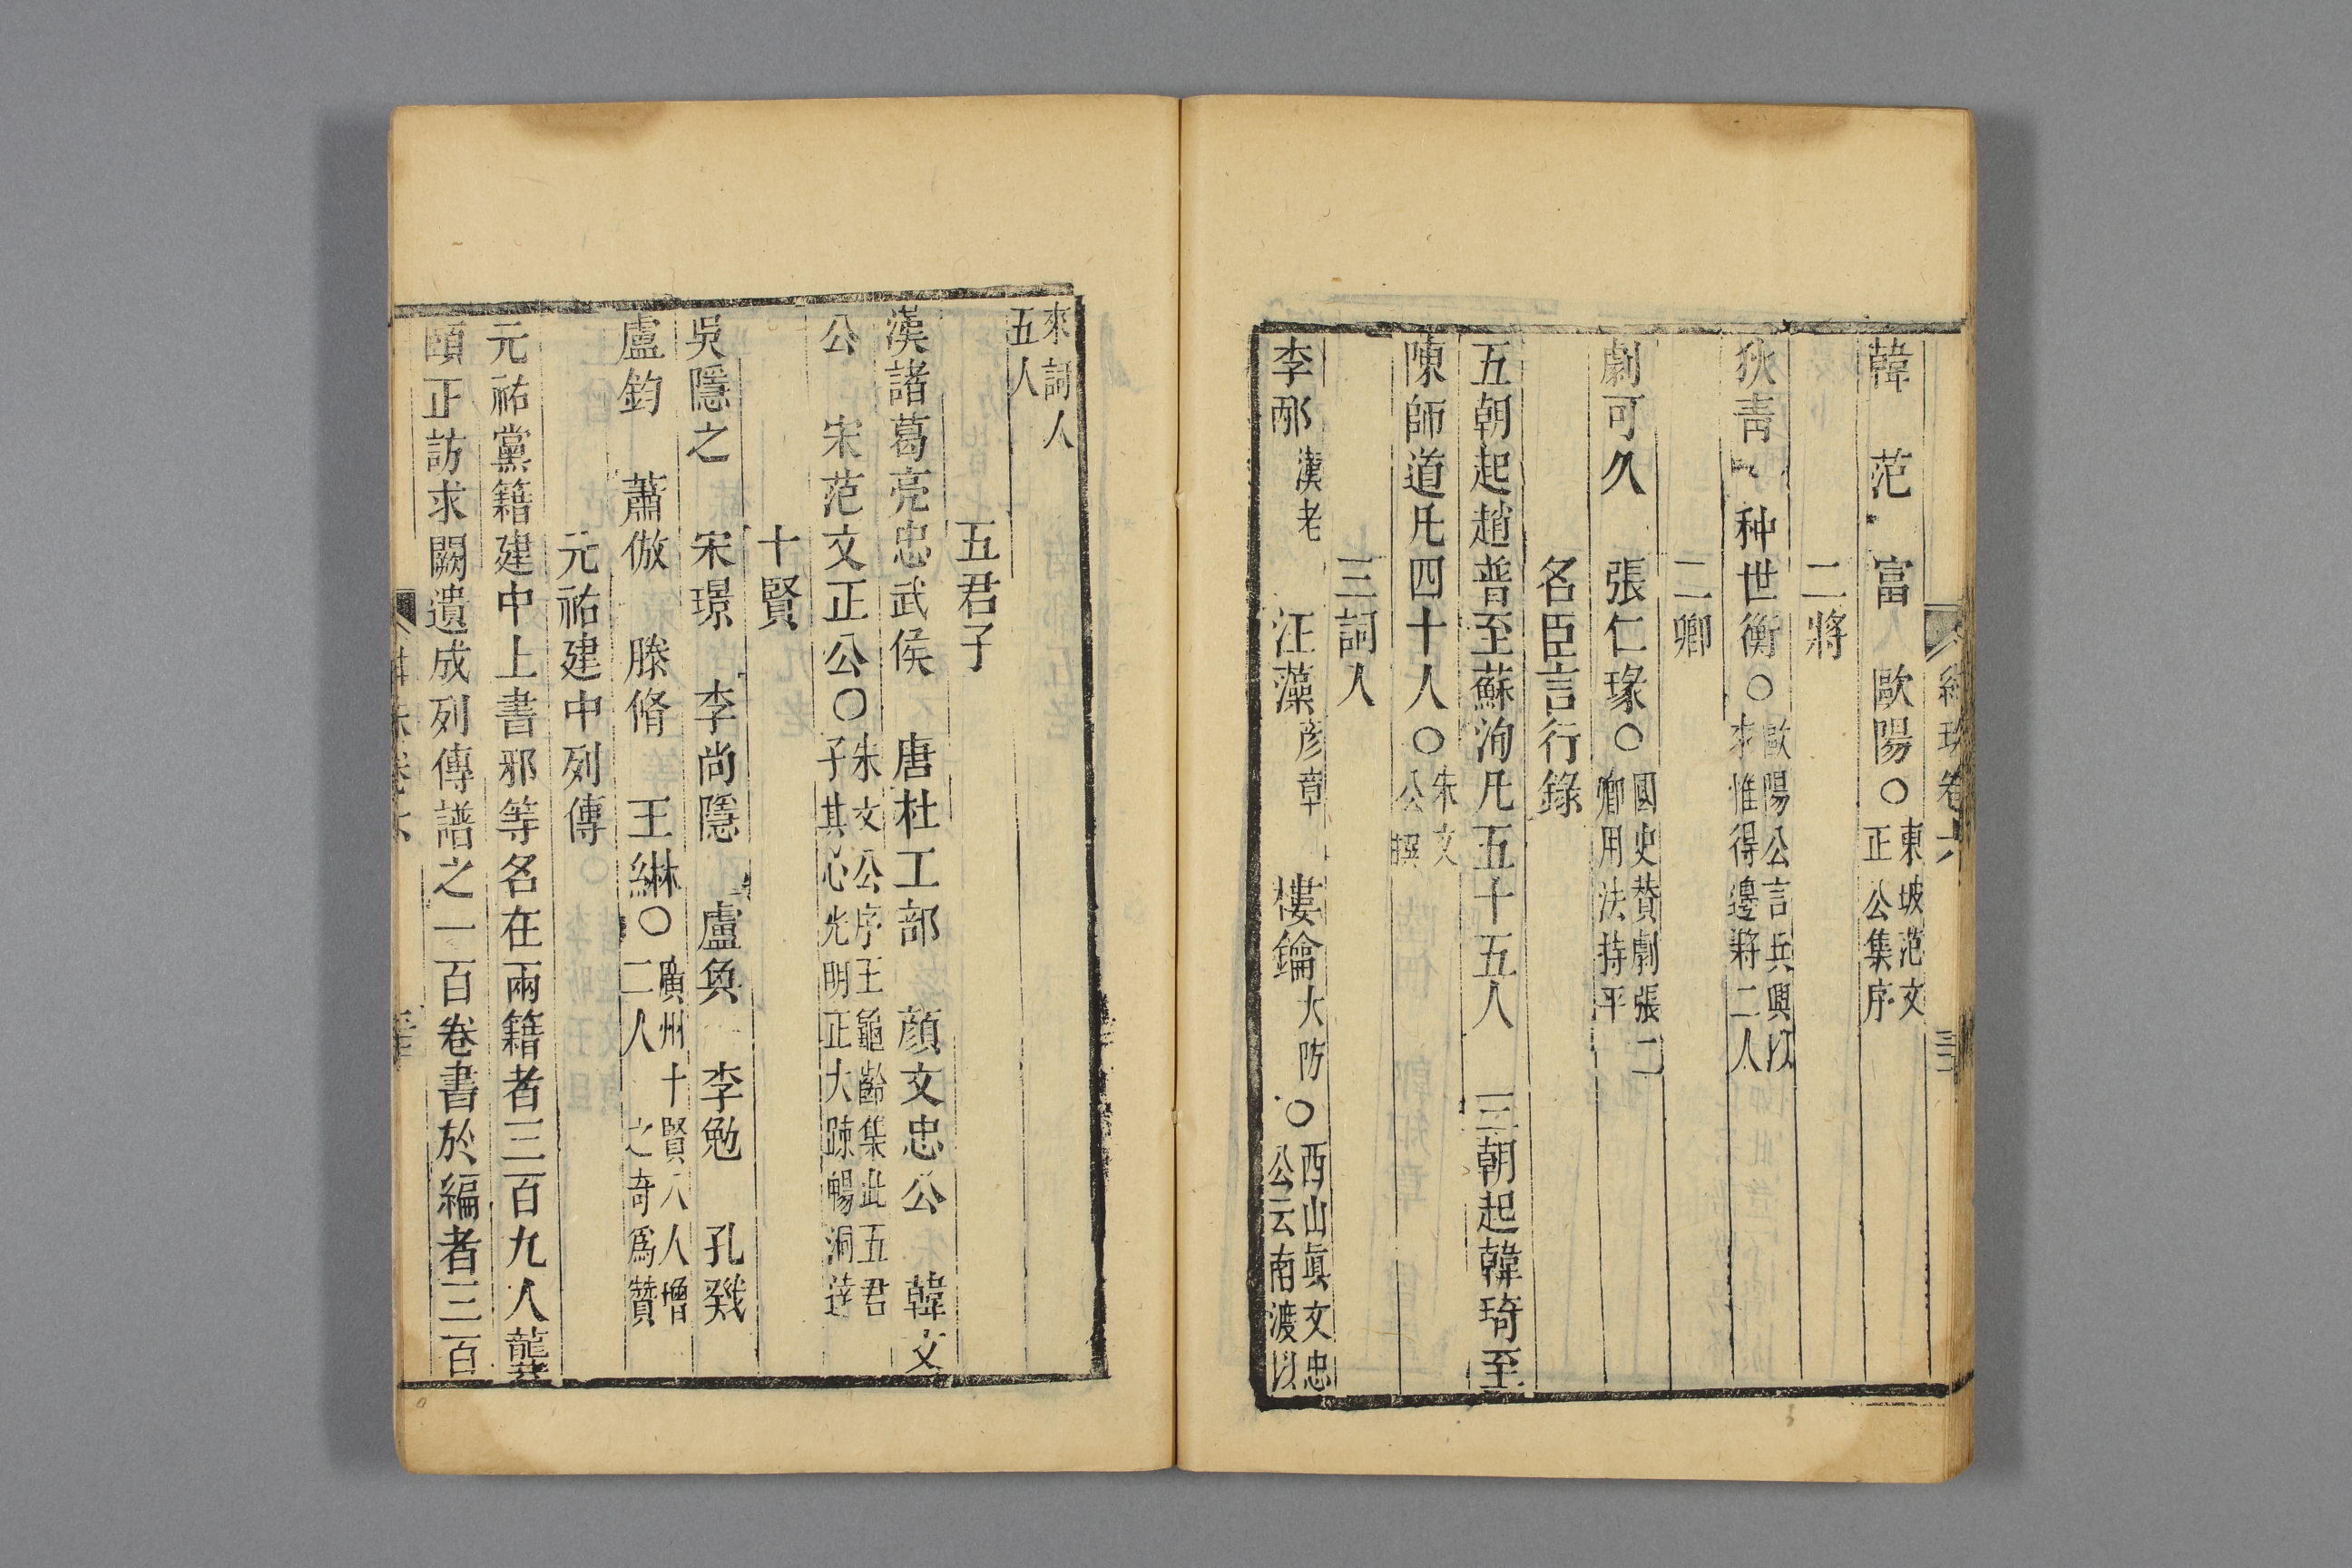 紺珠卷六
韓 范 富 歐陽○東坡范文正公集序
二將
狄青 种世衡○歐陽公言兵興以來惟得邊將二人
二卿
劇可久 張仁瑑○國史賛劇張二卿用法持平
名臣言行錄
五朝起趙普至蘇洵凡五十五人 三朝起韓琦至
陳師道凡四十人○朱文公撰
三詞人
李邴漢老 汪藻彦章 樓鑰大防○西山眞文忠公云南渡以
來詞人五人
五君子
漢諸葛亮忠武侯 唐杜工部 顔文忠公 韓文
公 宋范文正公○朱文公序王龜齡集此五君子其心光明正大踈暢洞達
十賢
吳隱之 宋璟 李尚隱 盧奐 李勉 孔戣
盧鈞 蕭倣 滕脩 王綝○廣州十賢八人增二人 之奇爲贊
元祐建中列傳
元祐黨籍建中上書邪等名在兩籍者三百九人龔
頤正訪求闕遺成列傳譜之一百卷書於編者三百